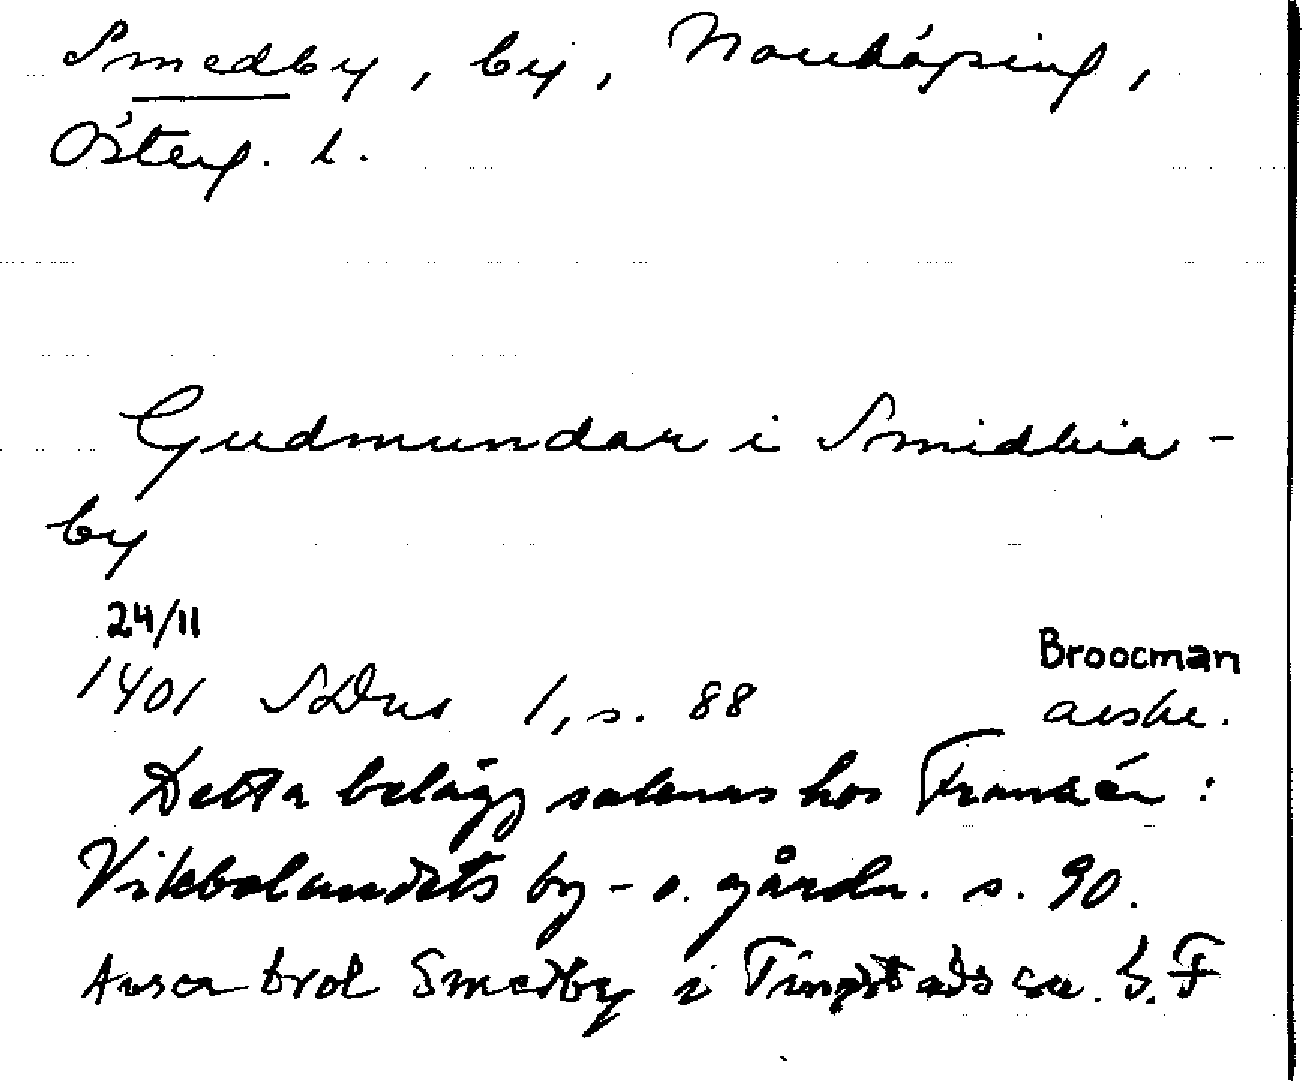 Smedby, by, Norrköping,
Österg. l.
Gudmundar i Smidhia-
by
24/11
1401 SDns 1, s. 88 Broocman
avskr.
Detta belägg saknas hos Franzén:
Vikbolandets by- o. gårdn. s. 90.
Avser trol Smedby i Tingstads sn. G. F